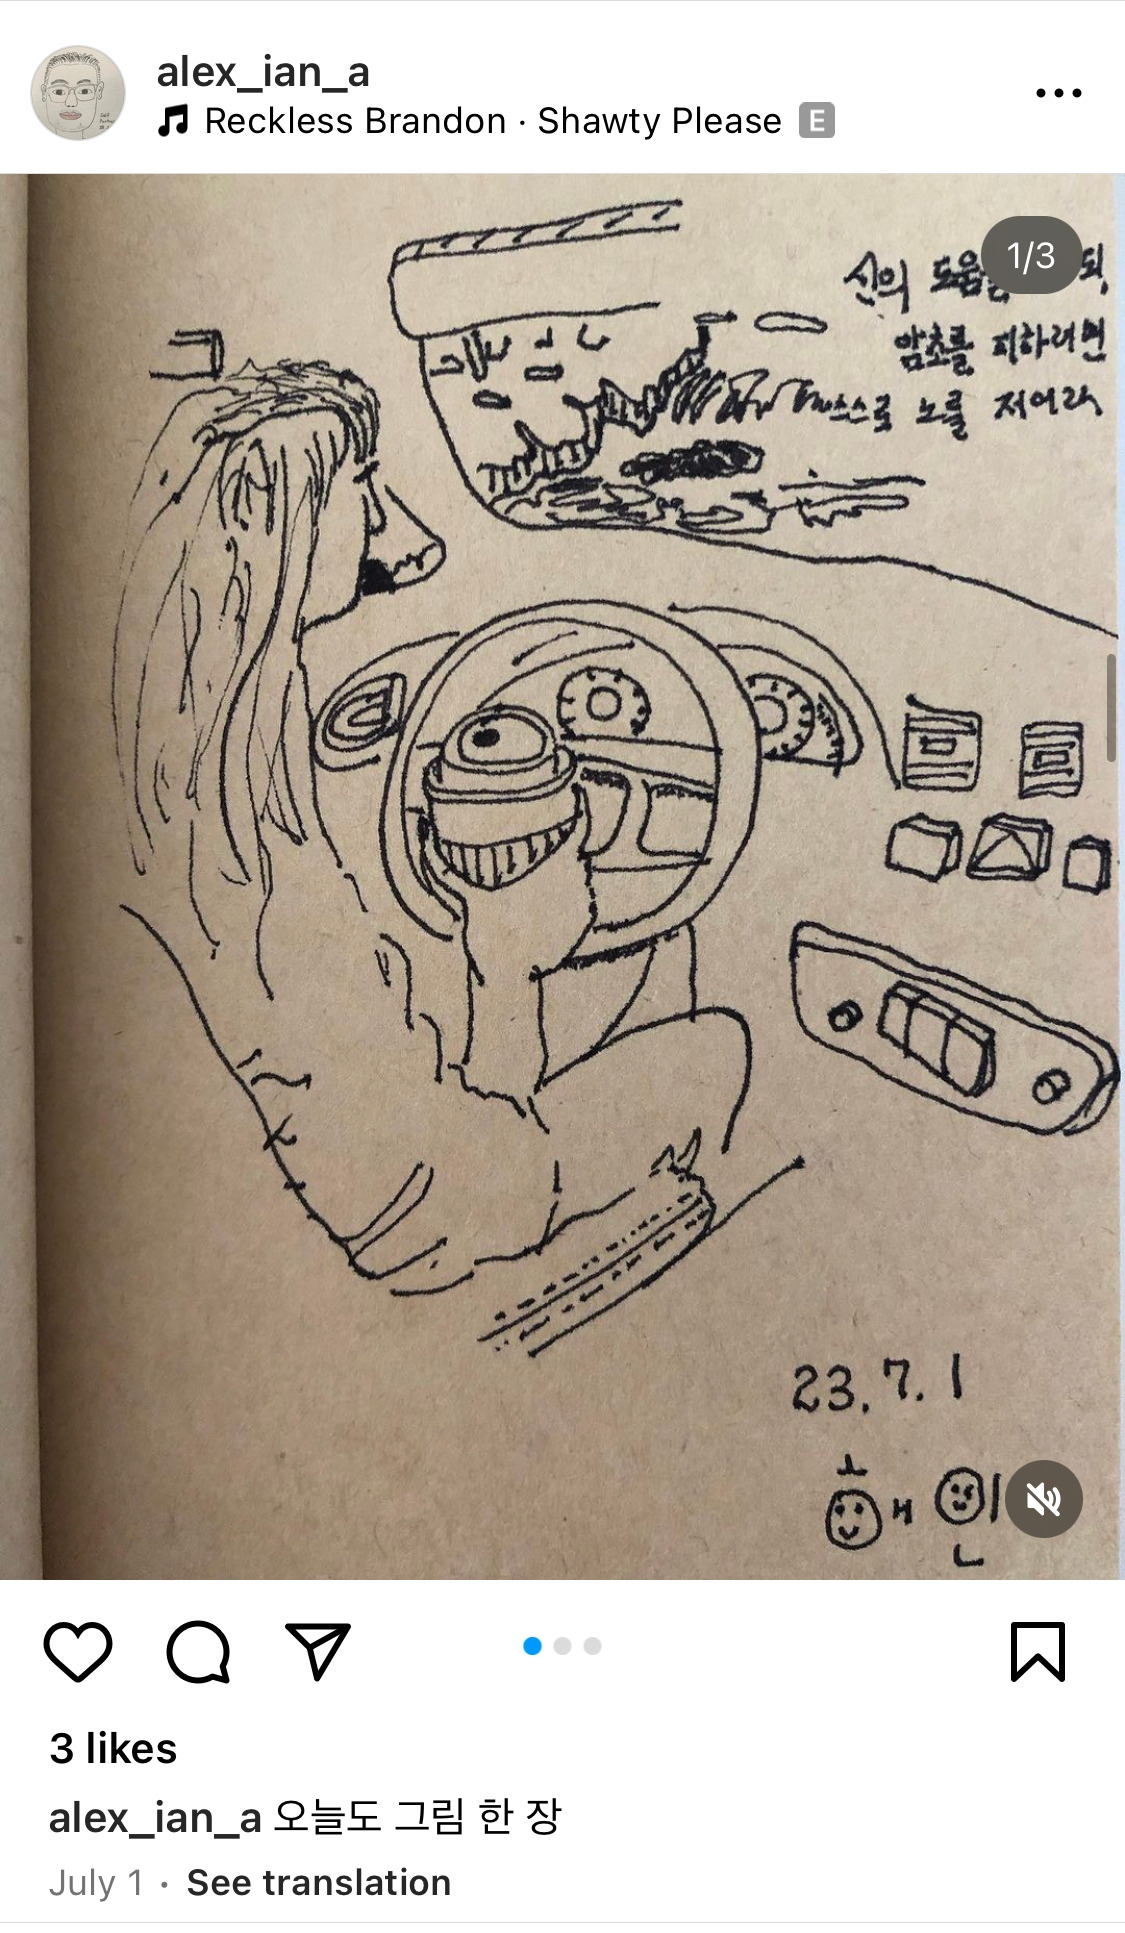 alex_ian_a
Reckless Brandon · Shawty Please E
1/3
신의 도움을 되,
암초를 피하려면
스스로 노를 저어라
23.7.1
3 likes
alex_ian_a 오늘도 그림 한 장
July 1 · See translation